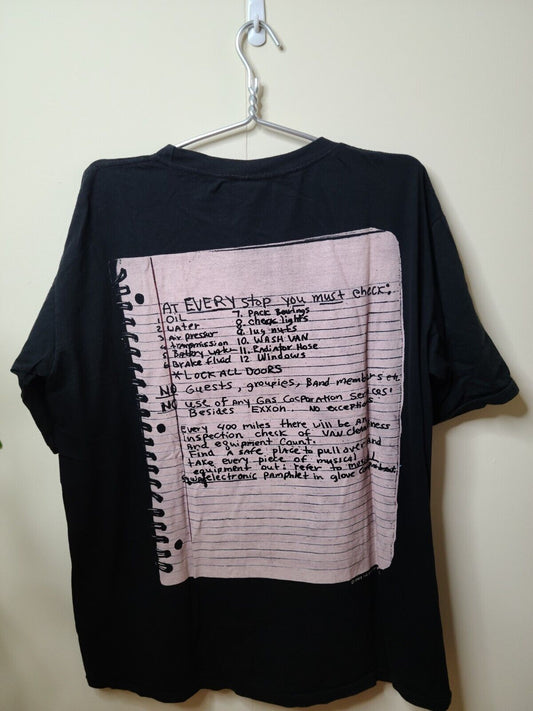 AT EVERY stop you must check:
1. OIL 7. Pack Bearings
2 Water 8. check lights
3. Air pressur 9. lug nuts
4 transmission 10. WASH VAN
5 Battery Wate 11. Radiator Hose
6 Brake fluid 12. Windows
* LOCK ALL DOORS
NO Guests, groupies, Band members etc.
NO use of Any GAS Corporation Services
Besides EXXON. NO exceptions
Every 400 miles there will be An
inspection check of VAN cleanliness
And equipment Count.
Find A safe place to pull over and
take every piece of musical
equipment out: refer to musical
electronic pamphlet in glove